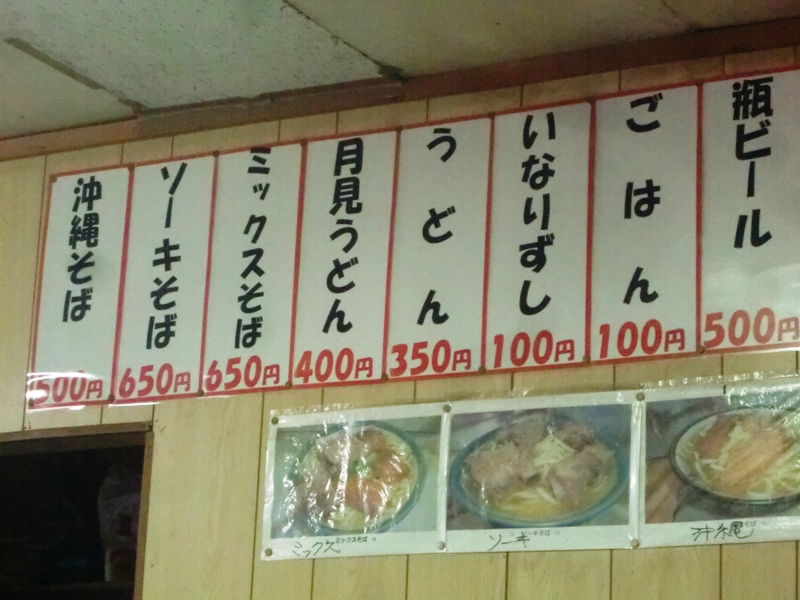 瓶ビール
500円
ごはん
100円
いなりずし
100円
うどん
350円
月見うどん
400円
ミックスそば
650円
ソーキそば
650円
沖縄そば
500円
ミックスそば
ミックス
ソーキそば
ソーキ
沖縄